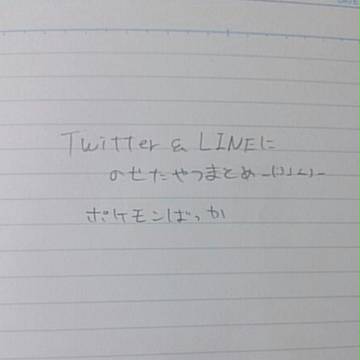 Twitter & LINEに
のせたやつまとめ
ポケモンばっか